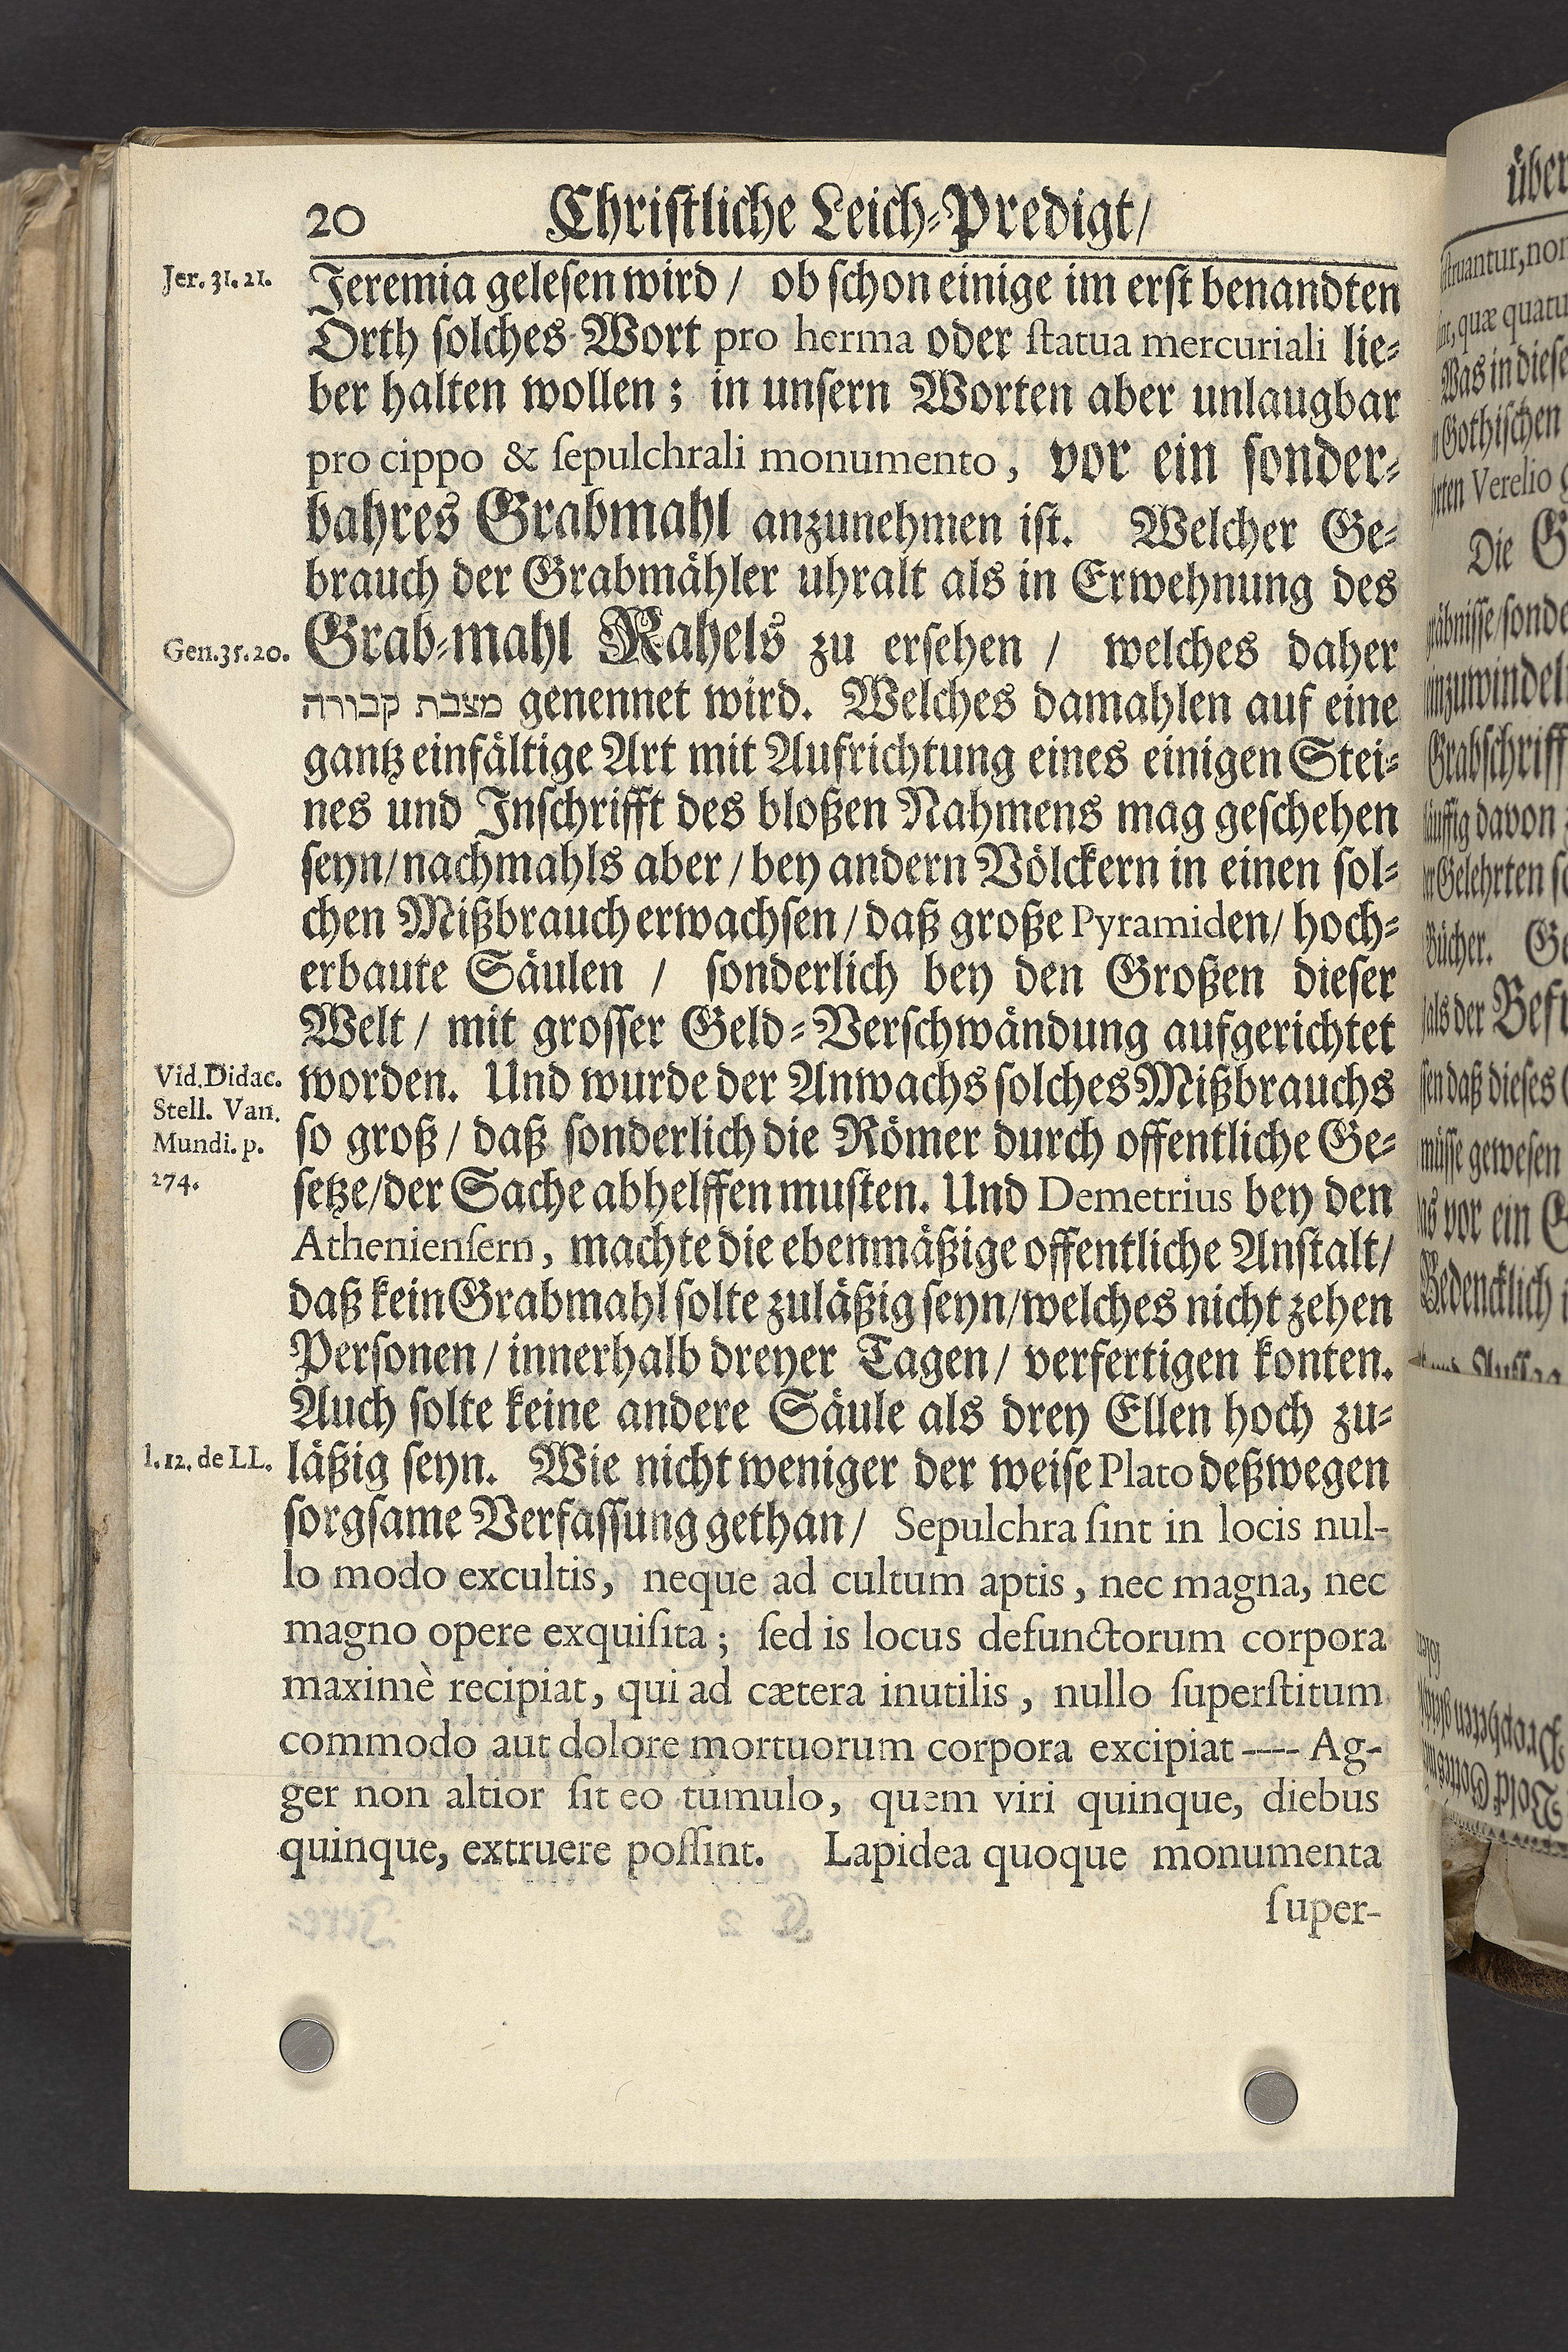 20 Christliche Leich-Predigt/
Jer. 31. 21.
Jeremia gelesen wird / ob schon einige im erst benandten
Orth solches Wort pro herma oder ſtatua mercuriali lie-
ber halten wollen; in unsern Worten aber unlaugbar
pro cippo & ſepulchrali monumento, vor ein sonder-
bahres Grabmahl anzunehmen ist. Welcher Ge-
brauch der Grabmähler uhralt als in Erwehnung des
Gen. 35. 20.
Grab-mahl Rahels zu ersehen / welches daher
מצבת קבורה genennet wird. Welches damahlen auf eine
gantz einfältige Art mit Aufrichtung eines einigen Stei-
nes und Inschrifft des bloßen Nahmens mag geschehen
seyn/nachmahls aber / bey andern Völckern in einen sol-
chen Mißbrauch erwachsen / daß große Pyramiden/ hoch-
erbaute Säulen / sonderlich bey den Großen dieser
Welt / mit grosser Geld-Verschwändung aufgerichtet
Vid. Didac.
Stell. Van.
Mundi. p.
274.
worden. Und wurde der Anwachs solches Mißbrauchs
so groß / daß sonderlich die Römer durch offentliche Ge-
setze/der Sache abhelffen musten. Und Demetrius bey den
Athenienſern, machte die ebenmäßige offentliche Anstalt/
daß kein Grabmahl solte zuläßig seyn/welches nicht zehen
Personen / innerhalb dreyer Tagen / verfertigen konten.
Auch solte keine andere Säule als drey Ellen hoch zu-
l. 12. de LL.
läßig seyn. Wie nicht weniger der weise Plato deßwegen
sorgsame Verfassung gethan/ Sepulchra ſint in locis nul-
lo modo excultis, neque ad cultum aptis, nec magna, nec
magno opere exquiſita; ſed is locus defunctorum corpora
maximè recipiat, qui ad cætera inutilis, nullo ſuperſtitum
commodo aut dolore mortuorum corpora excipiat ---- Ag-
ger non altior ſit eo tumulo, quem viri quinque, diebus
quinque, extruere poſſint. Lapidea quoque monumenta
ſuper-
über
ſtruantur, non
quæ quatu
Was in diese
Gothischen
Verelio
Die
Grabschriff
davon
Gelehrten
Bücher.
als der
daß dieses
müsse gewesen
vor ein
Bedencklich